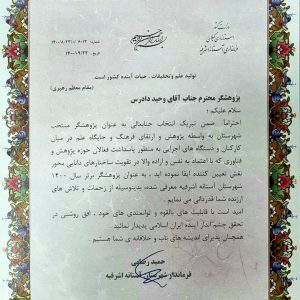 شماره:
تولید علم و تحقیقات، حیات آینده کشور است.
(مقام معظم رهبری)
پژوهشگر محترم جناب آقای وحید دادرس
سلام علیکم؛
احتراماً ضمن تبریک انتخاب جنابعالی به عنوان پژوهشگر منتخب
شهرستان به واسطه پژوهش و ارتقای فرهنگ و جایگاه علم در میان
کارکنان و دستگاه های اجرایی به منظور پاسداشت فعالان حوزه پژوهش و
فناوری که با اعتماد به نفس و اراده والا در تقویت ساختارهای دانایی محور
نقش تعیین کننده ایفا نموده اید، به عنوان پژوهشگر برتر سال ۱۴۰۰
شهرستان آستانه اشرفیه معرفی شده، بدینوسیله از زحمات و تلاش های
ارزنده شما قدردانی می نمایم.
امید است با قابلیت های بالقوه و توانمندی های خود، افق روشنی در
تحقق چشم انداز آینده ایران اسلامی پدیدار نمائید.
همچنان پذیرای اندیشه های ناب و خلاقانه ی شما هستیم.
حمید رضایی
فرماندار شهرستان آستانه اشرفیه